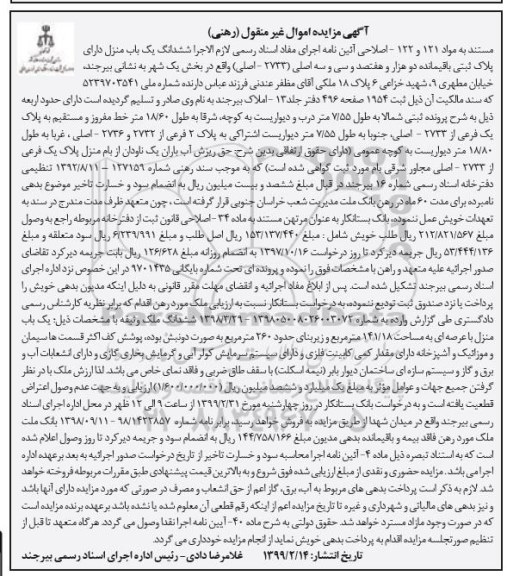 آگهی مزایده اموال غیر منقول (رهنی)
مستند به مواد ۱۲۱ و ۱۲۲ - اصلاحی آئین نامه اجرای مفاد اسناد رسمی لازم الاجرا ششدانگ یک باب منزل دارای
پلاک ثبتی باقیمانده دو هزار و هفتصد و سی و سه اصلی (۲۷۳۳ - اصلی) واقع در بخش یک شهر به نشانی بیرجند،
خیابان مطهری ۹، شهید خزاعی ۶ پلاک ۱۸ ملکی آقای مظفر عندنی فرزند عباس دارنده شماره ملی ۵۲۳۹۷۰۳۵۴۱
که سند مالکیت آن ذیل ثبت ۱۹۵۴ صفحه ۴۹۶ دفتر جلد ۱۳ - املاک بیرجند به نام وی صادر و تسلیم گردیده است دارای حدود اربعه
ذیل به شرح پرونده ثبتی شمالا به طول ۷/۵۵ متر درب و دیواریست به کوچه، شرقا به طول ۱۸/۶۰ متر خط مفروز و مستقیم به پلاک
یک فرعی از ۲۷۳۳ - اصلی، جنوبا به طول ۷/۵۵ متر دیواریست اشتراکی به پلاک ۲ فرعی از ۲۷۳۲ و ۲۷۳۶ - اصلی، غربا به طول
۱۸/۸۰ متر دیواریست به کوچه عمومی (دارای حقوق ارتفاقی بدین شرح حق ریزش آب باران یک ناودان از بام منزل پلاک یک فرعی
از ۲۷۳۳ - اصلی مجاور شرقی بام مورد ثبت گواهی شده است) که به موجب سند رهنی شماره ۱۲۷۱۵۹ - ۱۳۹۲/۸/۱۱ تنظیمی
دفترخانه اسناد رسمی شماره ۱۶ بیرجند در قبال مبلغ ششصد و بیست میلیون ریال به انضمام سود و خسارت تاخیر موضوع بدهی
نامبرده برای مدت ۶۰ ماه در رهن بانک ملت مدیریت شعب خراسان جنوبی قرار گرفته است، چون متعهد ظرف مدت مندرج در سند به
تعهدات خویش عمل ننموده، بانک بستانکار به عنوان مرتهن مستند به ماده ۳۴ - اصلاحی قانون ثبت از دفترخانه مربوطه راجع به وصول
مبلغ ۲۱۲/۸۲۱/۵۶۷ ریال طلب خویش شامل: مبلغ ۱۵۳/۱۳۷/۴۴۰ ریال اصل طلب و مبلغ ۶/۲۳۹/۹۹۱ ریال سود متعلقه و مبلغ
۵۳/۴۴۴/۱۳۶ ریال جریمه دیرکرد تا روز درخواست ۱۳۹۷/۱۰/۱۶ به انضمام روزانه مبلغ ۱۲۶/۶۲۸ ریال بابت جریمه دیرکرد تقاضای
صدور اجرائیه علیه متعهد و راهن با مشخصات فوق را نموده و پرونده ای تحت شماره بایگانی ۹۷۰۱۴۳۵ در این خصوص نزد اداره اجرای
اسناد رسمی بیرجند تشکیل شده است. پس از ابلاغ مفاد اجرائیه و انقضای مهلت مقرر قانونی به دلیل اینکه مدیون بدهی خویش را
پرداخت یا نزد صندوق ثبت تودیع ننموده، به درخواست بانک بستانکار نسبت به ارزیابی ملک مورد رهن اقدام که برابر نظریه کارشناس رسمی
دادگستری طی گزارش وارده به شماره ۱۳۹۸۰۵۰۰۸۰۲۶۰۰۳۰۷۲ - ۱۳۹۸/۳/۲۹ ششدانگ ملک وثیقه با مشخصات ذیل: یک باب
منزل با عرصه ای به مساحت ۱۴۱/۱۸ مترمربع و زیربنای حدود ۲۶۰ مترمربع به صورت دونبش بوده، پوشش کف اکثر قسمت ها سیمان
و موزائیک و آشپزخانه دارای مقدار کمی کابینت فلزی و دارای سیستم سرمایش کولر آبی و گرمایش بخاری گازی و دارای انشعابات آب و
برق و گاز و سیستم سازه ای ساختمان دیوار باربر (نیمه اسکلت) با سقف طاق ضربی و فاقد نمای خاص می باشد. لذا ارزش ملک با در نظر
گرفتن جمیع جهات و عوامل مؤثر به مبلغ یک میلیارد و ششصد میلیون ریال (۱/۶۰۰/۰۰۰/۰۰۰) ارزیابی و به جهت عدم وصول اعتراض
قطعیت یافته است و به درخواست بانک بستانکار در روز چهارشنبه مورخ ۱۳۹۹/۲/۳۱ از ساعت ۹ الی ۱۲ ظهر در محل اداره اجرای اسناد
رسمی بیرجند واقع در میدان شهدا از طریق مزایده به فروش خواهد رسید، برابر نامه شماره ۹۸۱۴۲۲۸۵۷ - ۱۳۹۸/۰۹/۱۱ بانک ملت
ملک مورد رهن فاقد بیمه و باقیمانده بدهی مدیون مبلغ ۱۴۴/۷۵۸/۱۶۶ ریال به انضمام سود و جریمه دیرکرد تا روز وصول اعلام شده
است که به استناد تبصره ذیل ماده ۴ - آئین نامه اجرا محاسبه سود و خسارت تاخیر از تاریخ درخواست صدور اجرائیه به بعد برعهده اداره
اجرا می باشد. مزایده حضوری و نقدی از مبلغ ارزیابی شده فوق شروع و به بالاترین قیمت پیشنهادی طبق مقررات مربوطه فروخته خواهد
شد. لازم به ذکر است پرداخت بدهی های مربوط به آب، برق، گاز اعم از حق انشعاب و مصرف در صورتی که مورد مزایده دارای آنها باشد
و نیز بدهی های مالیاتی و شهرداری و غیره تا تاریخ مزایده اعم از اینکه رقم قطعی آن معلوم شده یا نشده باشد برعهده برنده مزایده است
که در صورت وجود مازاد مسترد خواهد شد. حقوق دولتی به شرح ماده ۴۰ - آیین نامه اجرا نقدا وصول می گردد. هرگاه متعهد تا قبل از
تنظیم صورتجلسه مزایده اقدام به پرداخت بدهی خویش نماید از انجام مزایده خودداری می گردد.
تاریخ انتشار: ۱۳۹۹/۲/۱۴ غلامرضا دادی - رئیس اداره اجرای اسناد رسمی بیرجند